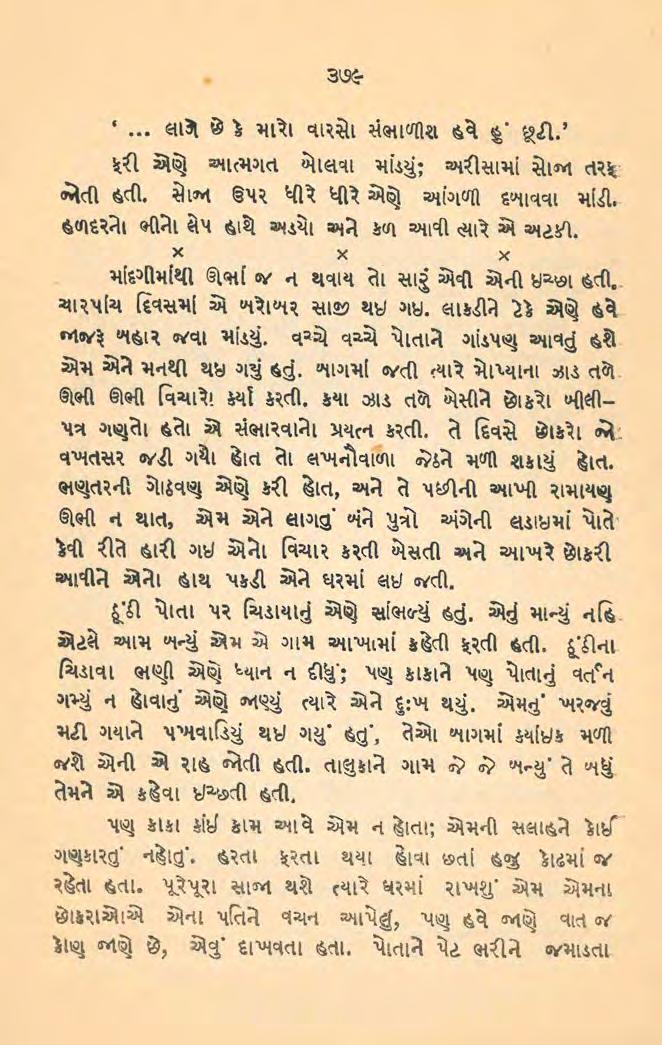 ૩૭૯
‘ ... લાગે છે કે મારો વારસો સંભાળીશ હવે હું છૂટી.’
ફરી એણે આત્મગત બોલવા માંડયું; અરીસામાં સોજા તરફ
જોતી હતી. સોજા ઉપર ધીરે ધીરે એણે આંગળી દબાવવા માંડી.
હળદરનો ભીનો લેપ હાથે અડયો અને કળ આવી ત્યારે એ અટકી.
× × ×
માંદગીમાંથી ઊભાં જ ન થવાય તો સારું એવી એની ઇચ્છા હતી.
ચારપાંચ દિવસમાં એ બરોબર સાજી થઇ ગઇ. લાકડીને ટેકે એણે હવે
જાજરૂ બહાર જવા માંડયું. વચ્ચે વચ્ચે પોતાને ગાંડપણ આવતું હશે
એમ એને મનથી થઇ ગયું હતું. બાગમાં જતી ત્યારે મોપ્યાના ઝાડ તળે
ઊભી ઊભી વિચારો કર્યા કરતી. કયા ઝાડ તળે બેસીને છોકરો બીલી–
પત્ર ગણતો હતો એ સંભારવાનો પ્રયત્ન કરતી. તે દિવસે છોકરો જો
વખતસર જડી ગયો હોત તો લખનૌવાળા જેઠને મળી શકાયું હોત.
ભણતરની ગોઠવણ એણે કરી હોત, અને તે પછીની આખી રામાયણ
ઊભી ન થાત, એમ એને લાગતું બંને પુત્રો અંગેની લડાઇમાં પોતે
કેવી રીતે હારી ગઇ એનો વિચાર કરતી બેસતી અને આખરે છોકરી
આવીને એનો હાથ પકડી એને ઘરમાં લઇ જતી.
ઠૂંઠી પોતા પર ચિડાયાનું એણે સાંભળ્યું હતું. એનું માન્યું નહિ
એટલે આમ બન્યું એમ એ ગામ આખામાં કહેતી ફરતી હતી. ઠૂંઠીના
ચિડાવા ભણી એણે ધ્યાન ન દીધું; પણ કાકાને પણ પોતાનું વર્તન
ગમ્યું ન હોવાનું એણે જાણ્યું ત્યારે એને દુ:ખ થયું. એમનું ખરજવું
મટી ગયાને પખવાડિયું થઇ ગયું હતું, તેઓ બાગમાં કયાંઇક મળી
જશે એની એ રાહ જોતી હતી. તાલુકાને ગામ જે જે બન્યું તે બધું
તેમને એ કહેવા ઇચ્છતી હતી.
પણ કાકા કાંઇ કામ આવે એમ ન હોતા; એમની સલાહને કોઈ
ગણકારતું નહોતું. હરતા ફરતા થયા હોવા છતાં હજુ કોઢમાં જ
રહેતા હતા. પૂરેપૂરા સાજા થશે ત્યારે ઘરમાં રાખશું એમ એમના
છોકરાઓએ એના પતિને વચન આપેલું, પણ હવે જાણે વાત જ
કોણ જાણે છે, એવું દાખવતા હતા. પોતાને પેટ ભરીને જમાડતા